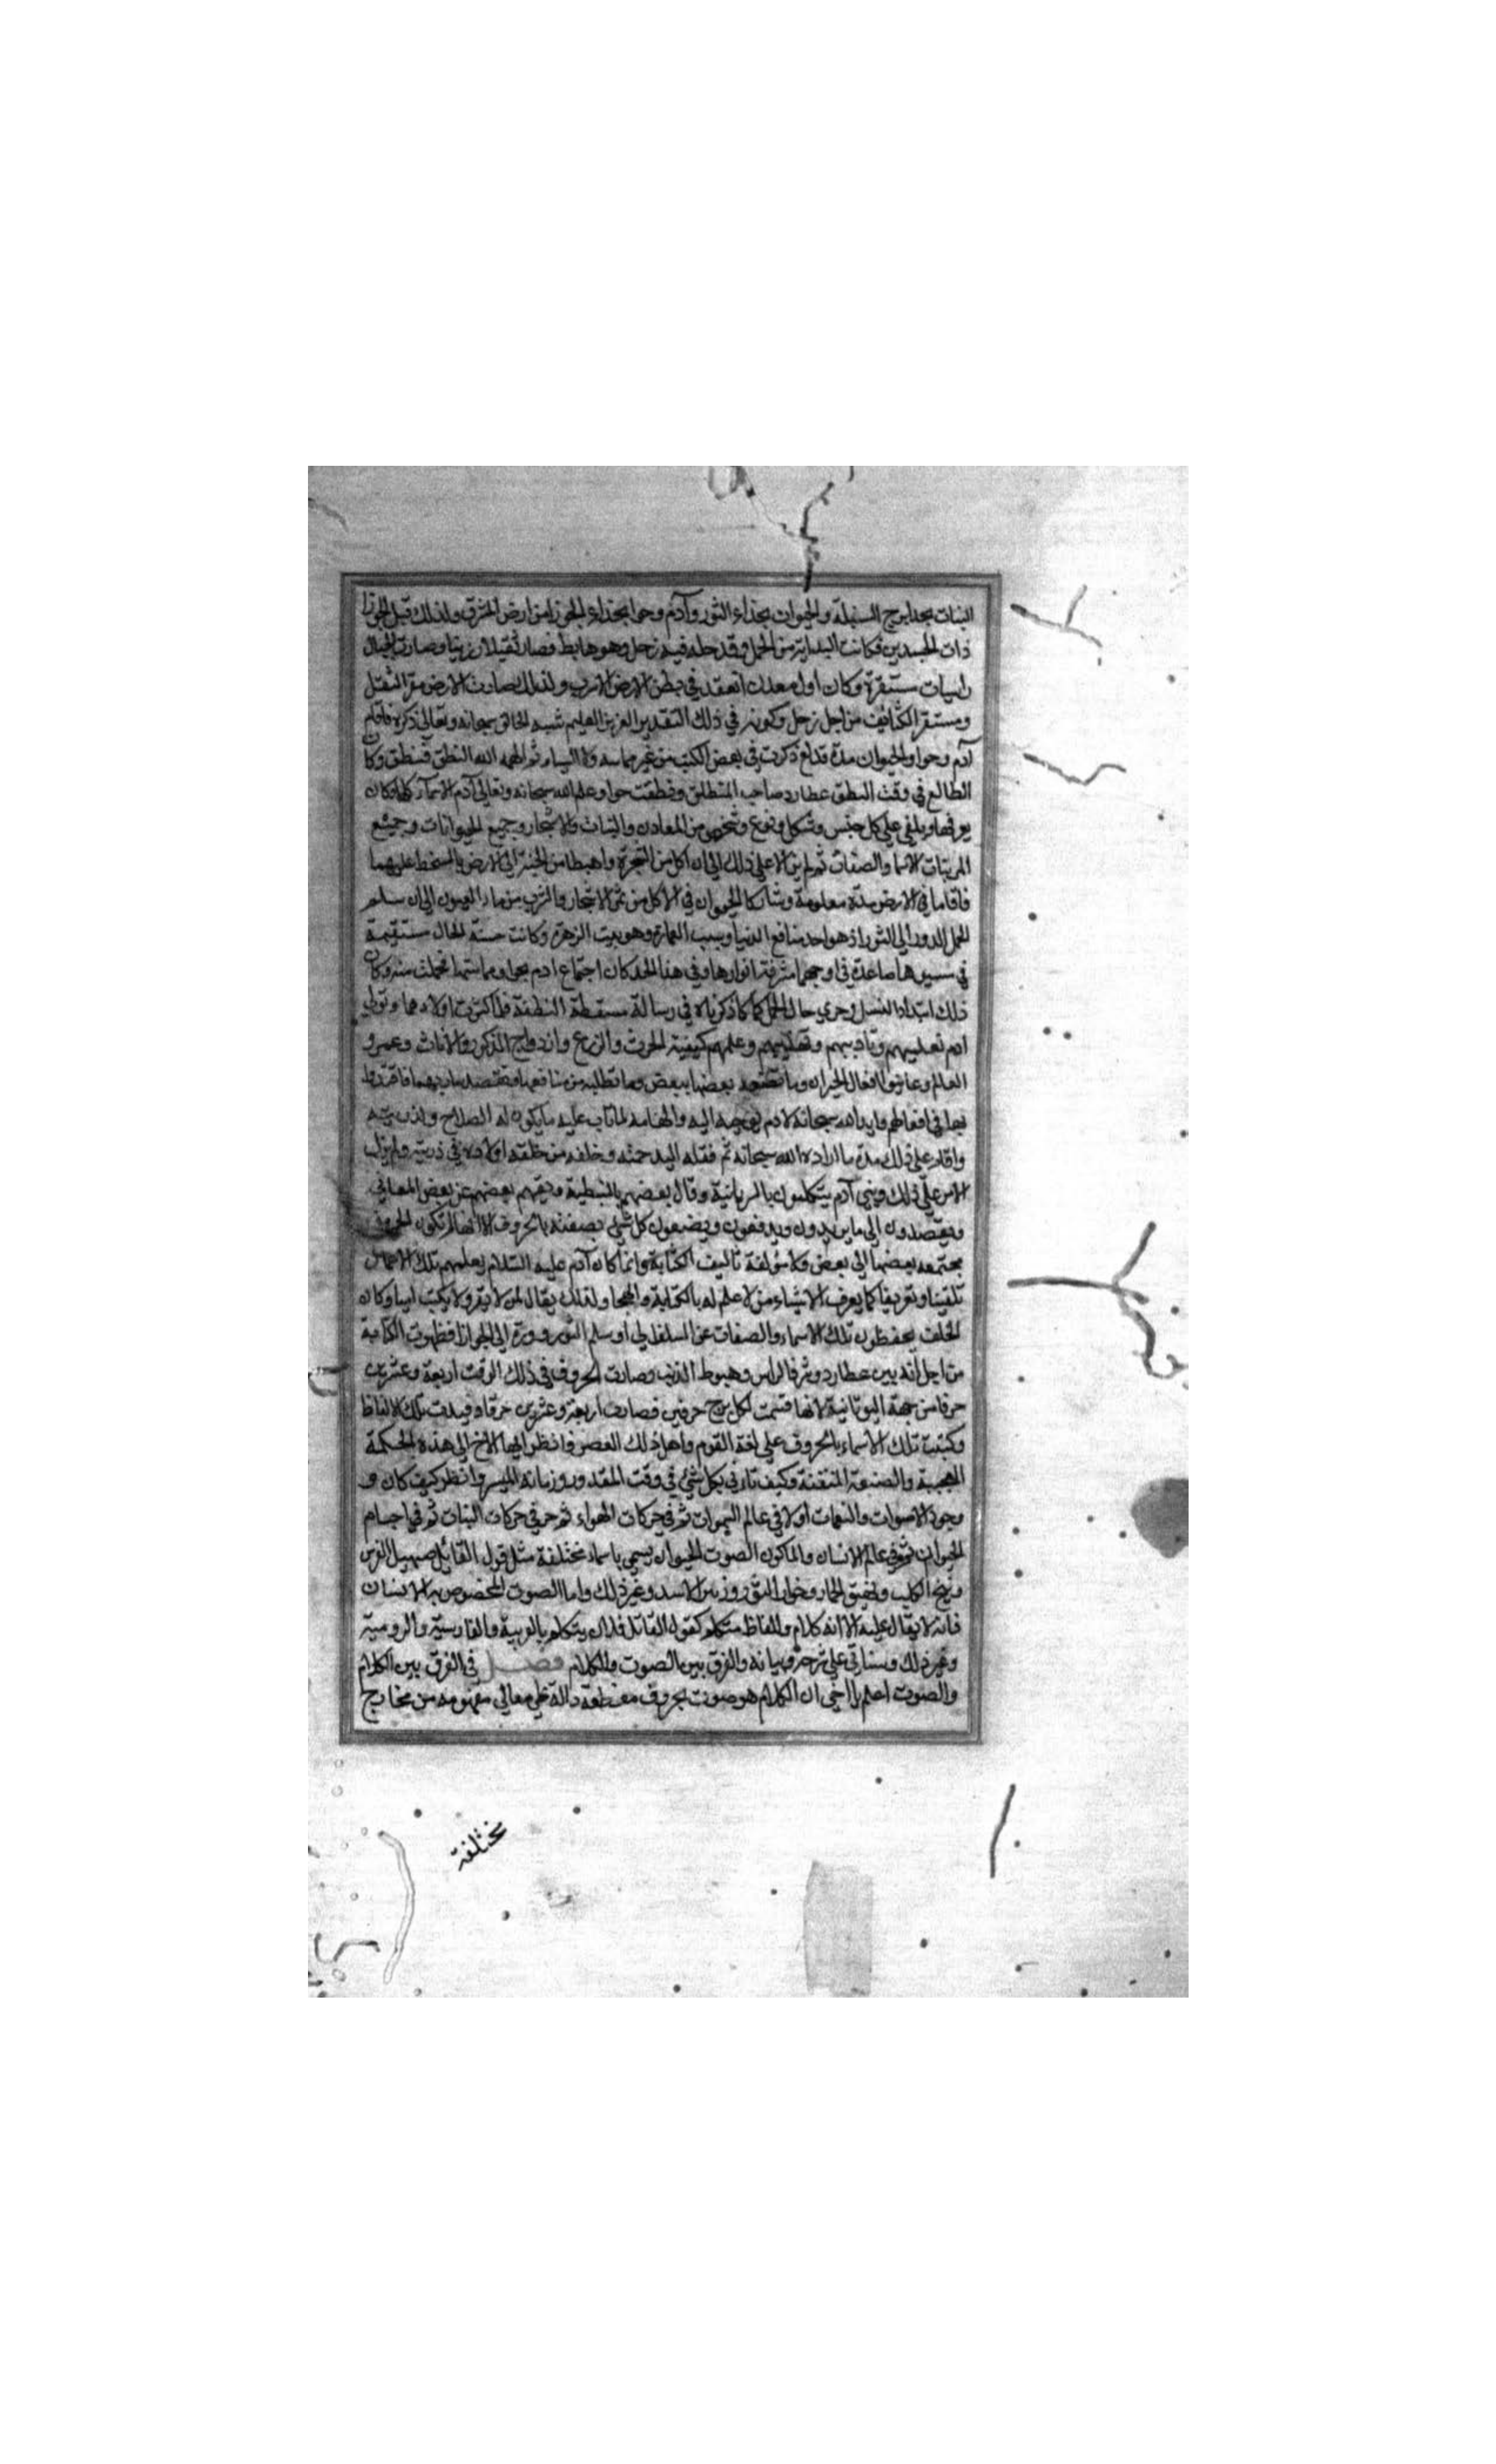 النبات بحذا برج السنبلة والحيوان بحذاء الثور وآدم وحوا بحذاء الجوزا من ارض المشرق ولذلك قيل الجوزا
ذات الجسدين فكانت البداية من الحمل وقد حله فيه زحل وهو هابط فصار ثقيلا رزينا وصارت الجبال
راسيات مستقرة وكان اول معدن انعقد في بطن الارض الاسرب ولذلك صارت الارض مقر الثقل
ومستقر الكثائف من اجل زحل وكونه في ذلك التقدير العزيز العليم شبه الخالق سبحانه وتعالى ذكره فاقام
آدم وحوا والحيوان مدة قد ذكرت في بعض الكتب من غير مماسه ولا ايساء ثم الهمه الله النطق فنطق وكان
الطالع في وقت النطق عطارد صاحب المنطق ونطقت حوا وعلم الله سبحانه وتعالى آدم الاسماء كلها وكان
يعرفها ويلقى على كل جنس وشكل ونوع وشخص من المعادن والنبات والاشجار وجميع الحيوانات وجميع
المرئيات الاسما والصفات ثم لم يزالا على ذلك الى ان اكلا من الشجرة واهبطا من الجنة الى الارض بالسخط عليهما
فاقاما في الارض مدة معلومة وشاركا الحيوان في الاكل من ثمر الاشجار والشرب من ماء العيون الى ان سلم
الحمل الدور الى الثور اذ هو احد منافع الدنيا وسبب العمارة وهو بيت الزهرة وكانت حسنة الحال مستقيمة
في سيرها صاعدة في اوجها مشرقة انوارها وفي هذا الحد كان اجتماع ادم بحوا ومماستها فحملت منه وكان
ذلك ابتداء النسل وجرى حال الحمل كما ذكرناه في رسالة مسقطة النطفة فلما كثرت اولادهما وتولى
ادم تعليمهم وتاديبهم وعلمهم كيفية الحرث والزرع وازدواج الذكور والاناث وعمرو
العالم وعاينوا افعال الحيوان وما بعضها ببعض وما تطلبه من منافعها فاقتدوا
بها في افعالهم وايد الله سبحانه لادم بوحيه اليه والهامه لما تاب عليه ما يكون له الصلاح ولذريته
واقام على ذلك مدة ما اراده الله سبحانه ثم نقله الى رحمته وخلفه من خلفه اولاده في ذريته ولم يزل
الامر على ذلك وبنى آدم يتكلمون بالسريانية وقال بعضهم بالنبطية ويفهم بعضهم عن بعض المعاني
ويقصدون الى ما يريدون ويدفعون ويضعون كل شيء بصفته بالحروف الا انها لم تكون الحروف
مجتمعه بعضها الى بعض ولا مؤلفة تاليف الكتابة وانما كان آدم عليه السلام يعلمهم تلك الاسماء
تلقينا وتعريفا كما يعرف الاشياء من لا علم له بالكتابة والهجا ولذلك يقال لمن لا يقرو ولا يكتب اميا وكان
الخلف يحفظون تلك الاسماء والصفات عن السلف الى ان سلم الثور دورة الى الجوزا فظهرت الكتابة
من اجل انه بين عطارد وشرف الراس وهبوط الذنب وصارت الحروف في ذلك الوقت اربعة وعشرين
حرفا من جهة اليونانية لانها قسمت لكل برج حرفين فصارت اربعة وعشرين حرفا وقيدت تلك الالفاظ
وكتبت تلك الاسماء بالحروف على لغة القوم واهل ذلك العصر فانظر ايها الاخ الى هذه الحكمة
العجيبة والصنعة المتقنة وكيف تاتي بكل شئ في وقت المقدور وزمانه الميسر وانظر كيف كان و
وجود الاصوات والنغمات اولا في عالم السموات ثم في حركات الهواء ثم في حركات النبات ثم في اجسام
الحيوان ثم في عالم الانسان ولما كون الصوت للحيوان يسمى باسماء مختلفة مثل قول القائل صهيل الفرس
ونبح الكلب ونهيق الحمار وخوار الثور وزئير الاسد وغير ذلك واما الصوت المخصوص به الانسان
فانه لا يقال عليه الا انه كلام والفاظ متكلم كقول القائل فلان يتكلم بالعربية والفارسية والرومية
وغير ذلك وسناتى على شرحه وبيانه والفرق بين الصوت والكلام فصل في الفرق بين الكلام
والصوت اعلم يا اخى ان الكلام هو صوت بحروف مقطعة دالة على معانى مفهومه من مخارج
مختلفة